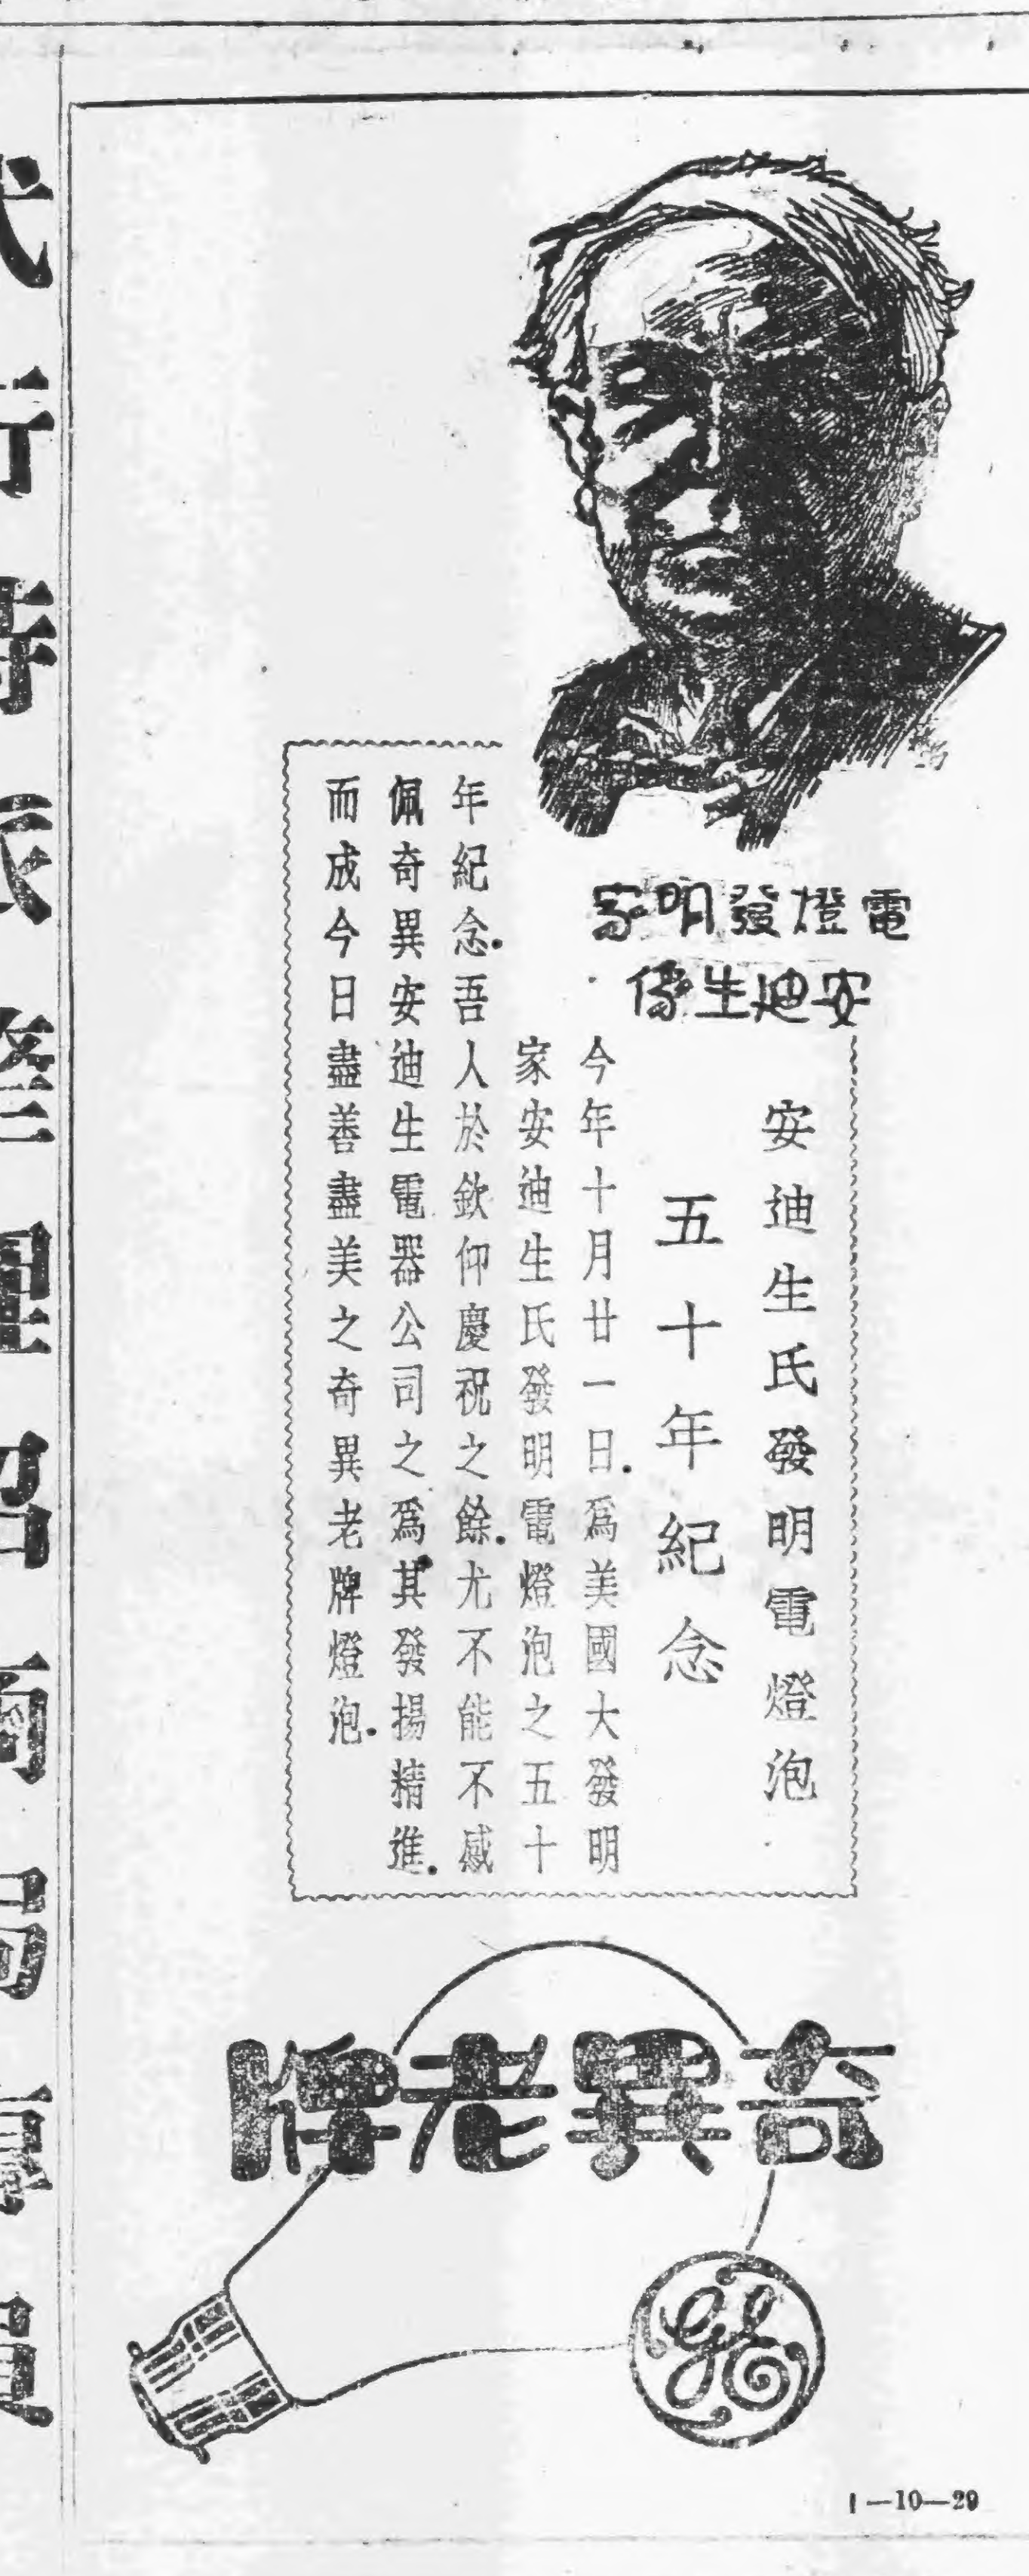 電燈發明家
安迪生像
安迪生氏發明電燈泡
五十年紀念
今年十月廿一日．為美國大發明
家安迪生氏發明電燈泡之五十
年紀念．吾人於欽仰慶祝之餘．尤不能不感
佩奇異安迪生電器公司之為其發揚精進．
而成今日盡善盡美之奇異老牌燈泡．
奇異老牌
GE
1—10—29